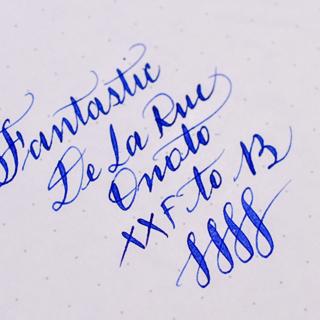 Fantastic
De La Rue
Onoto
XXF to B